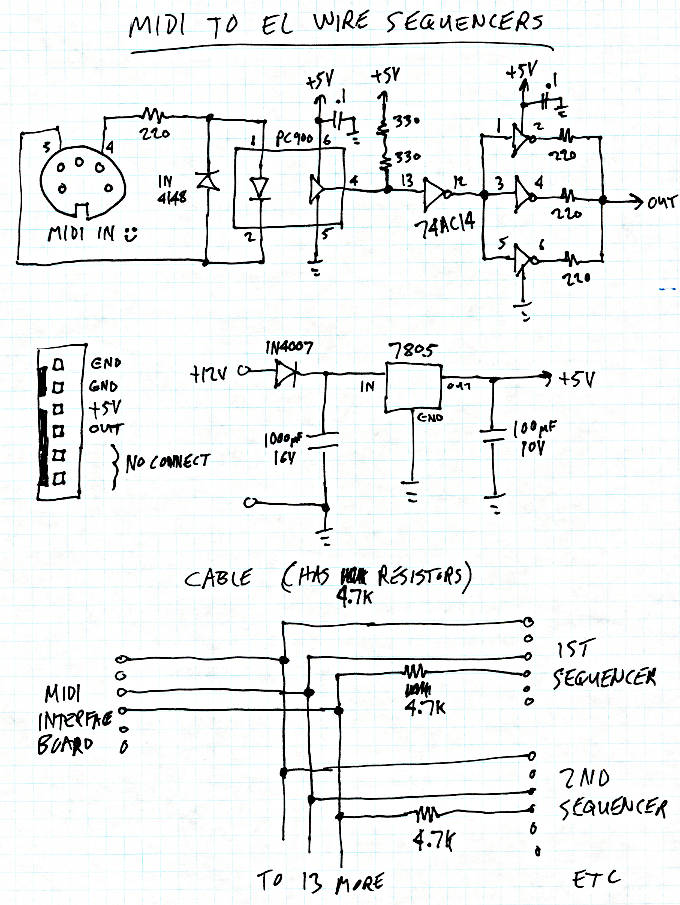 MIDI TO EL WIRE SEQUENCERS
+5V
+5V
+5V
.1
.1
5
4
220
1
PC900
6
330
330
1
2
220
IN
4148
4
13
12
3
4
220
OUT
74AC14
MIDI IN
2
5
5
6
220
GND
GND
+5V
OUT
NO CONNECT
+12V
1N4007
7805
IN
OUT
GND
+5V
1000µF
16V
100µF
10V
CABLE (HAS RESISTORS)
4.7K
1ST
SEQUENCER
4.7K
MIDI
INTERFACE
BOARD
2ND
SEQUENCER
4.7K
TO 13 MORE
ETC